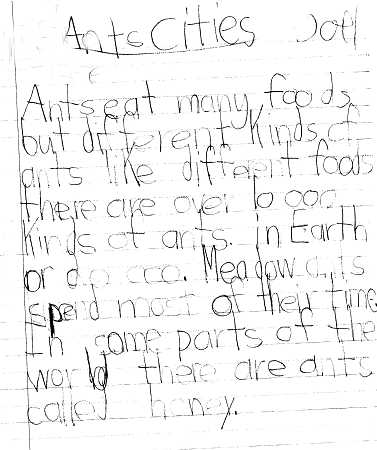 Ants Cities Joel
Ants eat many foods,
but different Kinds of
ants like different foods
there are over 10 000
Kinds of ants. in Earth
or Meadow ants
spend most of their time
In some parts of the
world there are ants
called honey.